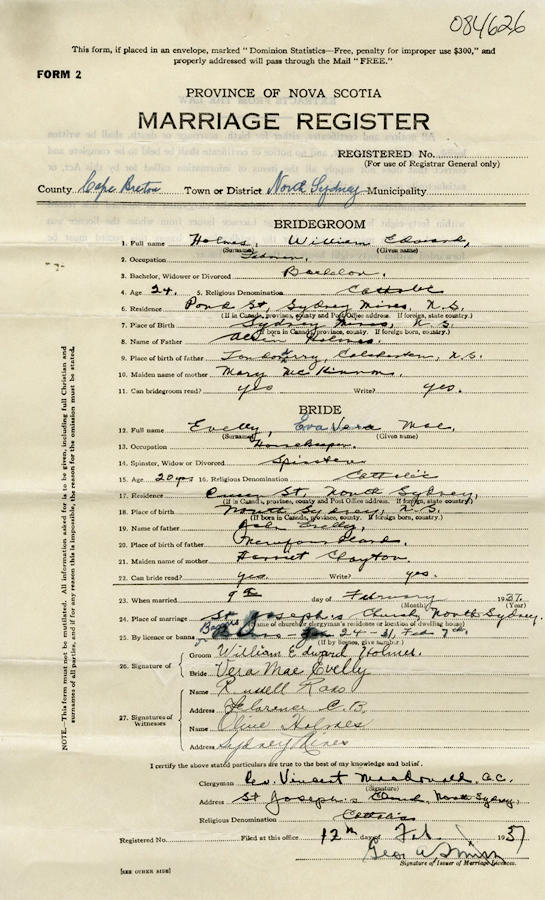 084626
This form, if placed in an envelope, marked "Dominion Statistics—Free, penalty for improper use $300," and
properly addressed will pass through the Mail "FREE."
FORM 2
PROVINCE OF NOVA SCOTIA
MARRIAGE REGISTER
REGISTERED No.
(For use of Registrar General only)
County Cape Breton Town or District North Sydney Municipality
BRIDEGROOM
1. Full name Holmes, William Edward,
(Surname) (Given name)
2. Occupation
3. Bachelor, Widower or Divorced Bachelor.
4. Age 24. 5. Religious Denomination Catholic
6. Residence Pond St, Sydney Mines, N.S.
(If in Canada, province, county and Post Office address. If foreign, state, country.)
7. Place of Birth Sydney Mines, N.S.
(If born in Canada, province, county. If foreign born, country.)
8. Name of Father Holmes.
9. Place of birth of father Londonderry, Colchester, N.S.
10. Maiden name of mother Mary McKinnon.
11. Can bridegroom read? yes Write? yes.
BRIDE
12. Full name Evelly, Eva Vera Mae.
(Surname) (Given name)
13. Occupation Housekeeper.
14. Spinster, Widow or Divorced Spinster
15. Age 20 yrs 16. Religious Denomination Catholic
17. Residence St, North Sydney,
(If in Canada, province, county and Post Office address. If foreign, state, country.)
18. Place of birth North Sydney, N.S.
(If born in Canada, province, county. If foreign born, country.)
19. Name of father John Evelly,
20. Place of birth of father Newfoundland.
21. Maiden name of mother Harriet Clayton
22. Can bride read? yes. Write? yes.
23. When married 9th day of February 1937.
(Month) (Year)
24. Place of marriage St Joseph's Church, North Sydney.
(Name of church or clergyman's residence or location of dwelling house)
25. By licence or banns Banns - Jan 24 - 31, Feb 7th.
(If by license, give number.)
26. Signature of
Groom William Edward Holmes.
Bride Vera Mae Evelly
27. Signatures of Witnesses
Name Russell Ross
Address Florence C.B.
Name Olive Holmes
Address Sydney Mines
I certify the above stated particulars are true to the best of my knowledge and belief.
Clergyman Rev. Vincent MacDonald, a.c.
(Signature)
Address St Joseph's Church, North Sydney,
Religious Denomination Catholic
Registered No. Filed at this office 12th day of Feb 1937
Signature of Issuer of Marriage Licences.
[SEE OTHER SIDE]
NOTE—This form must not be mutilated. All information asked for is to be given, including full Christian and
surnames of all parties, and if for any reason this is impossible, the reason for the omission must be stated.